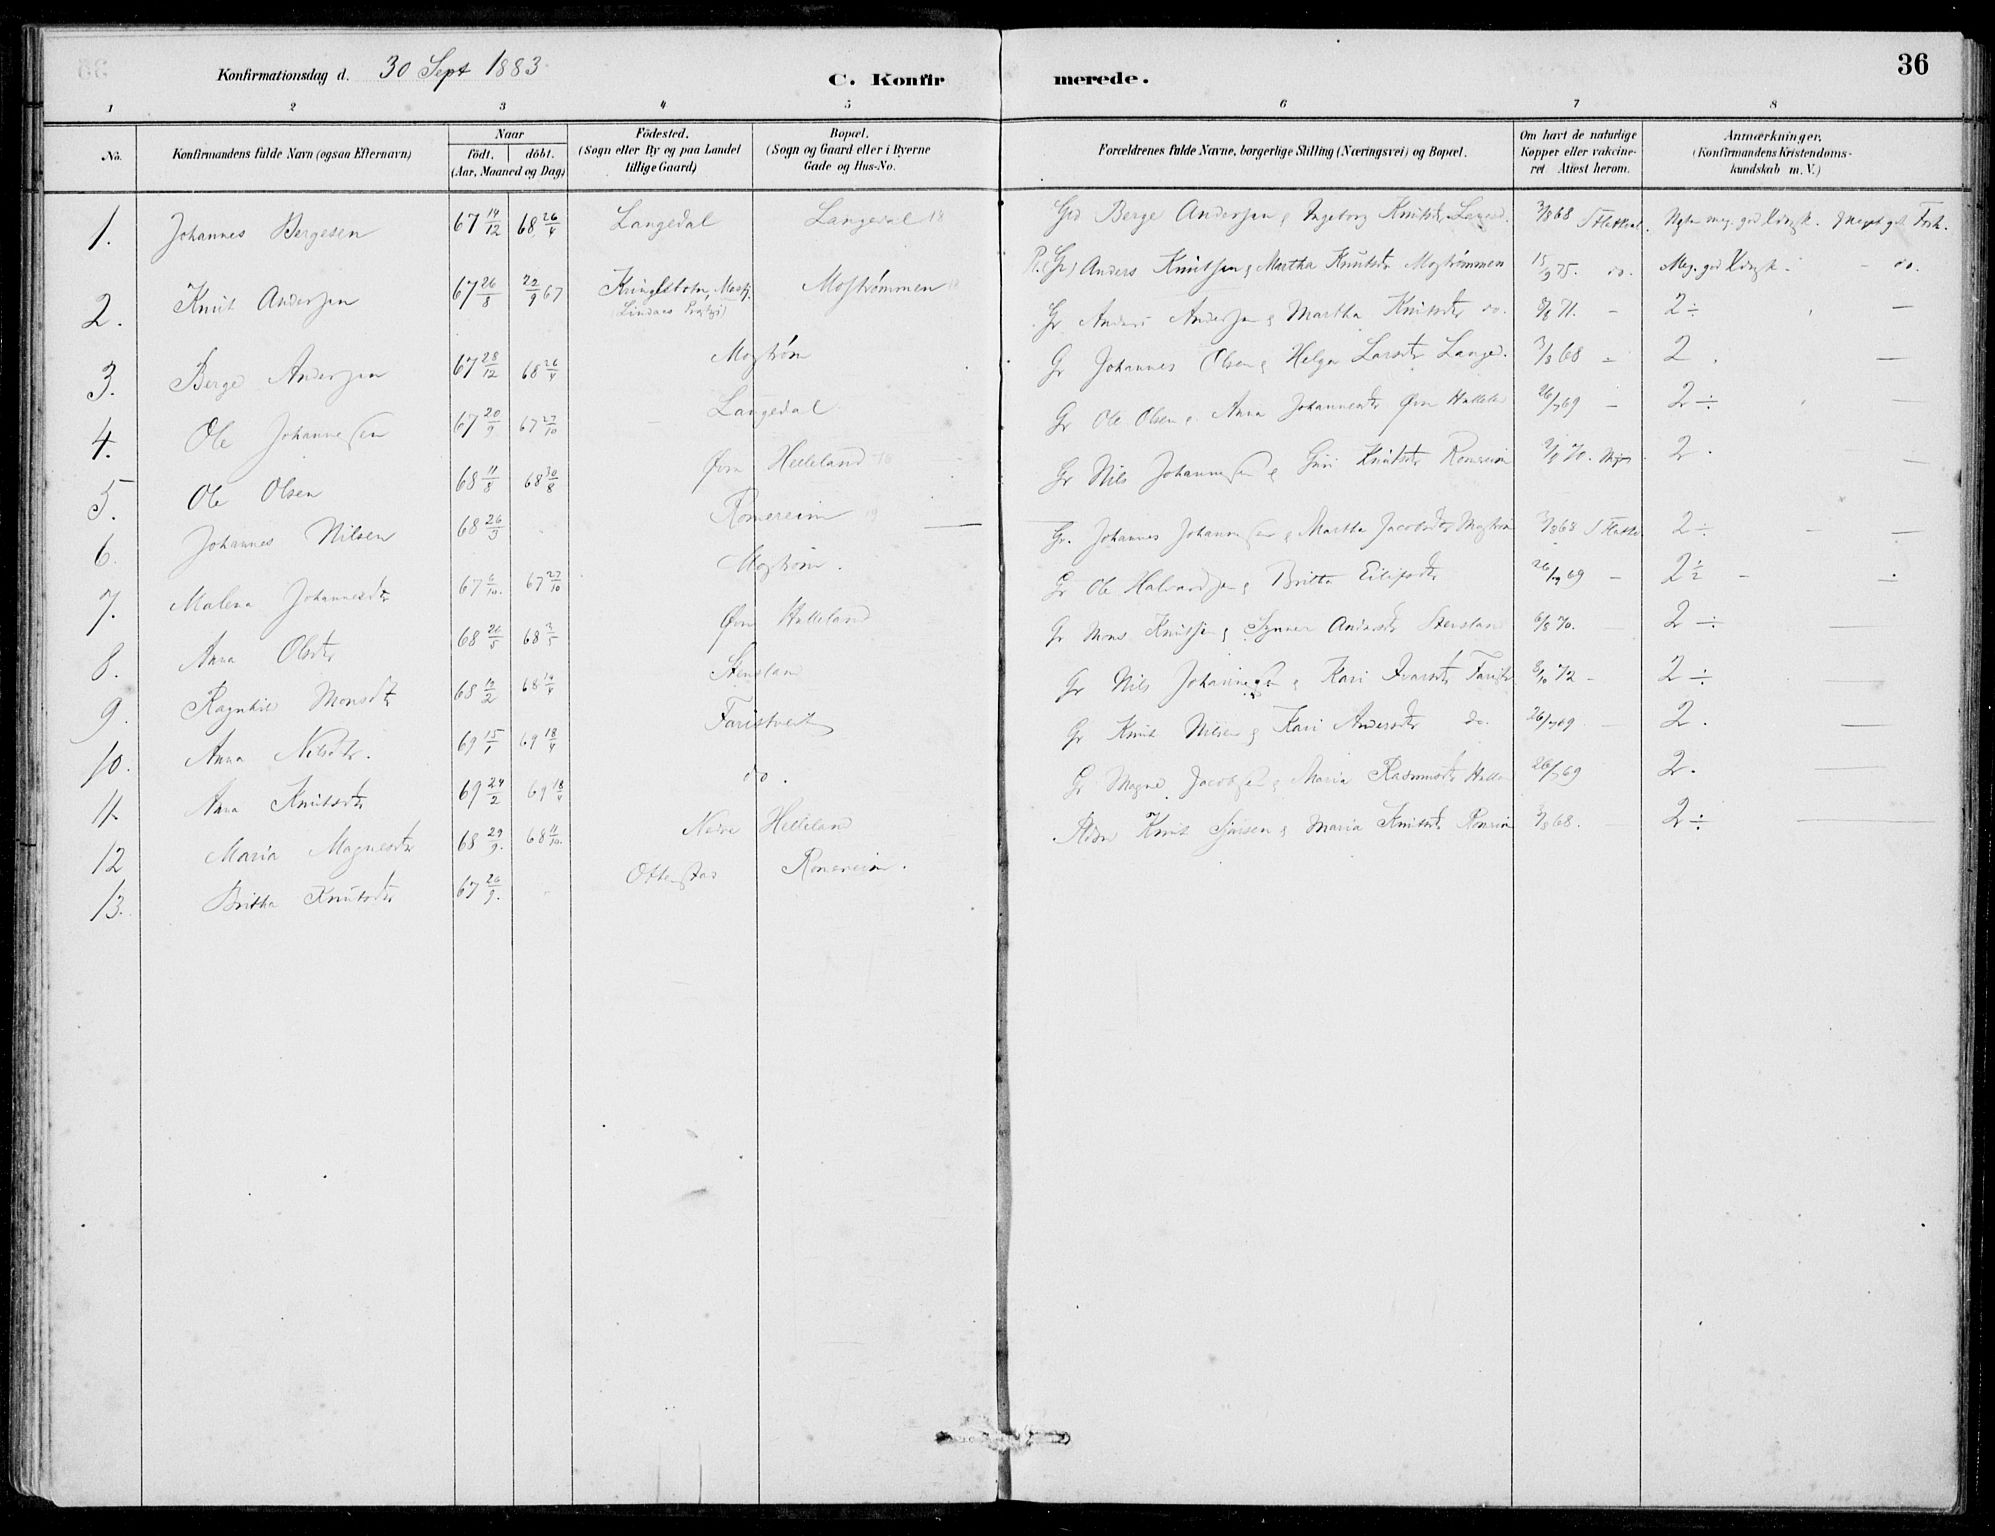 36
Konfirmationsdag d. 30 Sept 1883
C. Konfirmerede.
1 2 3 4 5 6 7 8
No. Konfirmandens fulde Navn (ogsaa Efternavn) Naar födt. döbt. (Aar, Maaned og Dag) Födested. (Sogn eller By og paa Landet tillige Gaard) Bopæl. (Sogn og Gaard eller i Byerne Gade og Hus-No. Forældrenes fulde Navne, borgerlige Stilling (Næringsvei) og Bopæl. Om havt de naturlige Kopper eller vakcineret Attest herom. Anmærkninger. (Konfirmandens Kristendomskundskab m. V.)
1. Johannes Bergesen 67 14/12 68 26/4 Langedal Langedal 18 Berge Andersen & Ingeborg Knutsdtr 3/8 68
2. Knut Andersen 67 26/8 22/9 67 Mostrømmen Anders Knutsen & Martha Knutsdtr Mostrømmen 15/9 75. do. Meg. god do.
3. Berge Andersen 67 28/12 68 26/4 Mostrøm Gr Anders Andersen & Martha Knutsdtr do. 8/8 71. – 2 ÷ —
4. Ole Johannessen 67 20/9 67 27/10 Langedal Gr Johannes Olsen & Helga Larsdtr 3/8 68 – 2. —
5. Ole Olsen 68 11/8 68 30/8 Øvre Helleland Gr Ole Olsen & Anna Johannesdtr Øvre 26/7 69 – 2 ÷ —
6. Johannes Nilsen 68 26/3 Romereim Gr Nils Johannessen & Guri Knutsdtr Romereim 2. —
7. Malena Johannesdtr 67 6/10. 67 27/10 Mostrøm. Gr. Johannes Johannessen & Martha Jacobsdtr Mostrøm 3/8 68 2 ÷ —
8. Anna Olsdtr 68 68 3/5 Øvre Helleland Gr Ole Halvardsen & Britha Eilifsdtr 26/7 69 – 2 ½ – —
9. Ragnhild Monsdtr 68 /2 68 Stensland Gr Mons Knutsen & Synneve Andersdtr Stensland 6/8 70. 2 ÷ —
10. Anna Nilsdtr. 69 15/1 69 18/4 Faristveit Gr Nils Johannessen & Kari Ivarsdtr 8/10 72 – 2 ÷ —
11. Anna Knutsdtr 69 24/2 69 18/4 do. Gr Knut Nilsen & Kari Andersdtr do. 26/7 69 – 2. —
12 Maria Magnesdtr 68 29/9. 68 11/10. Nedre Helleland Gr Magne Jacobsen & Maria Rasmusdtr 26/7 69 2. —
13. Britha Knutsdtr 67 26/9. Romereim. Knut & Maria Knutsdtr 3/8 68. – 2 ÷ —